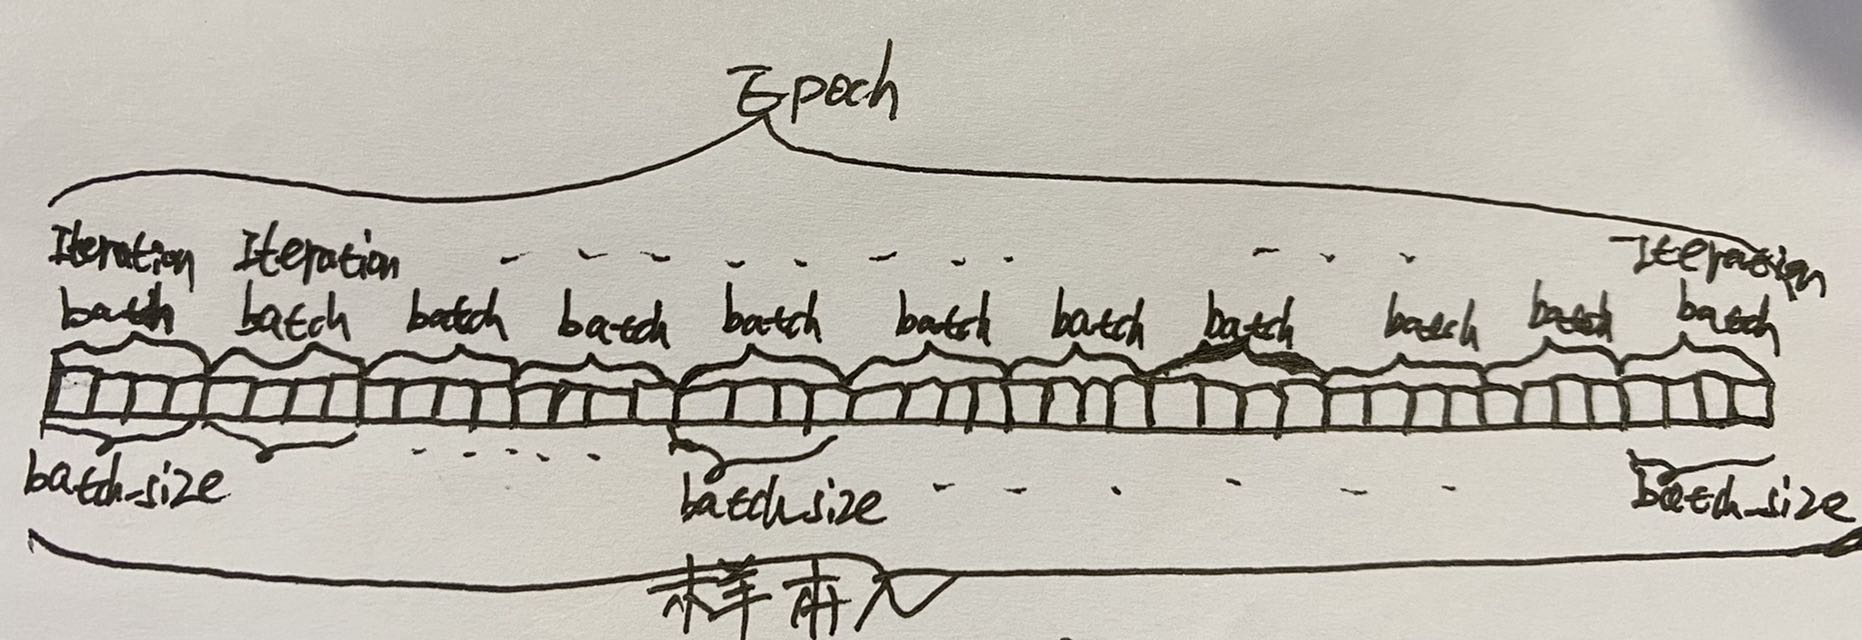 Epoch
Iteration Iteration Iteration
batch batch batch batch batch batch batch batch batch batch batch
batch_size batch_size batch_size
样本